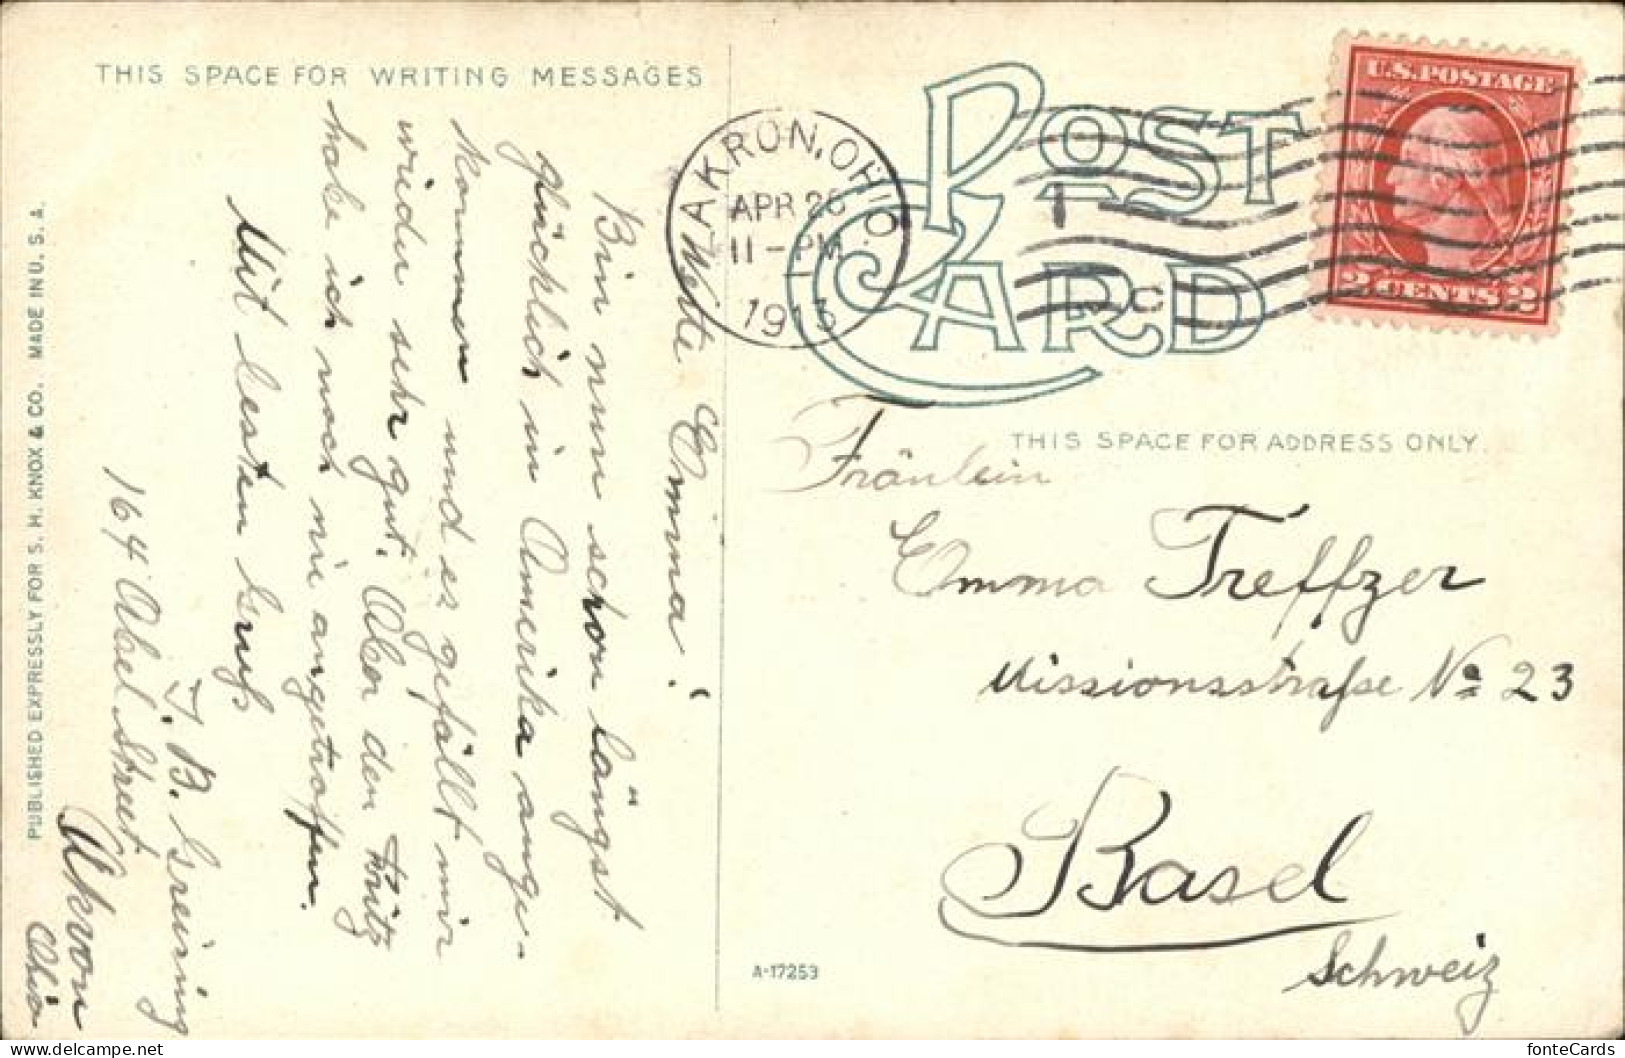 THIS SPACE FOR WRITING MESSAGES
Werte Emma!
Bin nun schon längst
glücklich in Amerika ange-
kommen und es gefällt mir
wieder sehr gut. Aber den Fritz
habe ich noch nie angetroffen.
Mit besten Gruß
J. B. Greining
164 Abel Street
Akron
Ohio
PUBLISHED EXPRESSLY FOR S. H. KNOX & CO. MADE IN U. S. A.
POST CARD
AKRON, OHIO
APR 26
11-PM
1913
1
C
U.S. POSTAGE
2 CENTS 2
THIS SPACE FOR ADDRESS ONLY.
Fräulein
Emma Treffzer
Missionsstraße No 23
Basel
Schweiz
A-17253
fonteCards